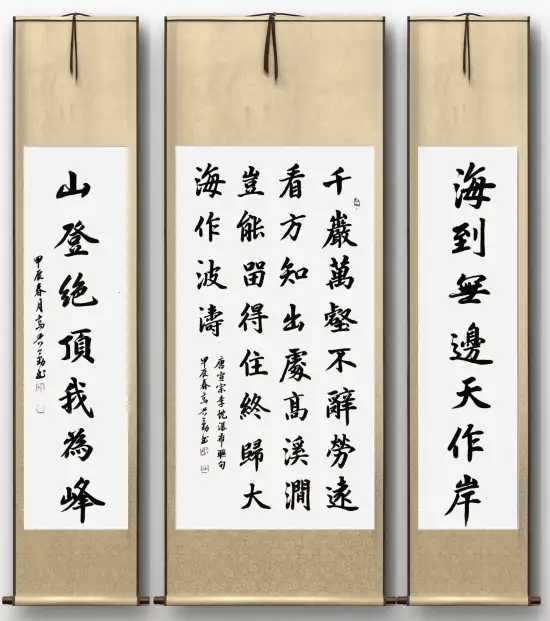 海到無邊天作岸
千巖萬壑不辭勞遠
看方知出處高溪澗
豈能留得住終歸大
海作波濤
唐宣宗李忱瀑布聯句
甲辰春高
山登绝頂我為峰
甲辰春月高